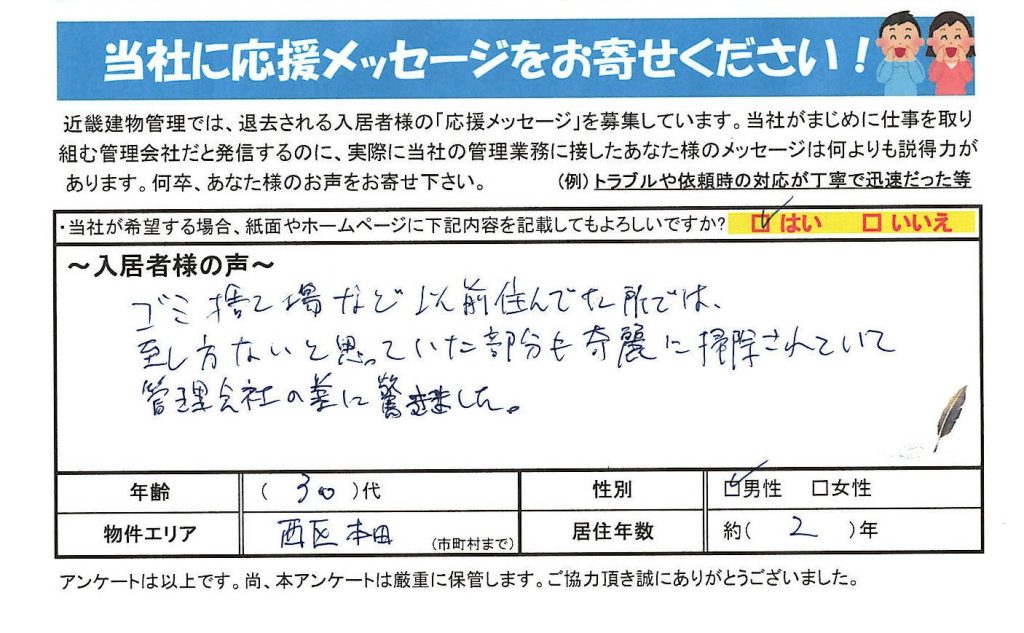 当社に応援メッセージをお寄せください！
近畿建物管理では、退去される入居者様の「応援メッセージ」を募集しています。当社がまじめに仕事を取り
組む管理会社だと発信するのに、実際に当社の管理業務に接したあなた様のメッセージは何よりも説得力が
あります。何卒、あなた様のお声をお寄せ下さい。 （例）トラブルや依頼時の対応が丁寧で迅速だった等
・当社が希望する場合、紙面やホームページに下記内容を記載してもよろしいですか？ ☑はい ☐いいえ
～入居者様の声～
ゴミ捨て場など以前住んでた所では、
至し方ないと思っていた部分も奇麗に掃除されていて
管理会社の差に驚きました。
年齢 （ 30 ）代 性別 ☑男性 ☐女性
物件エリア 西区本田 （市町村まで） 居住年数 約（ 2 ）年
アンケートは以上です。尚、本アンケートは厳重に保管します。ご協力頂き誠にありがとうございました。